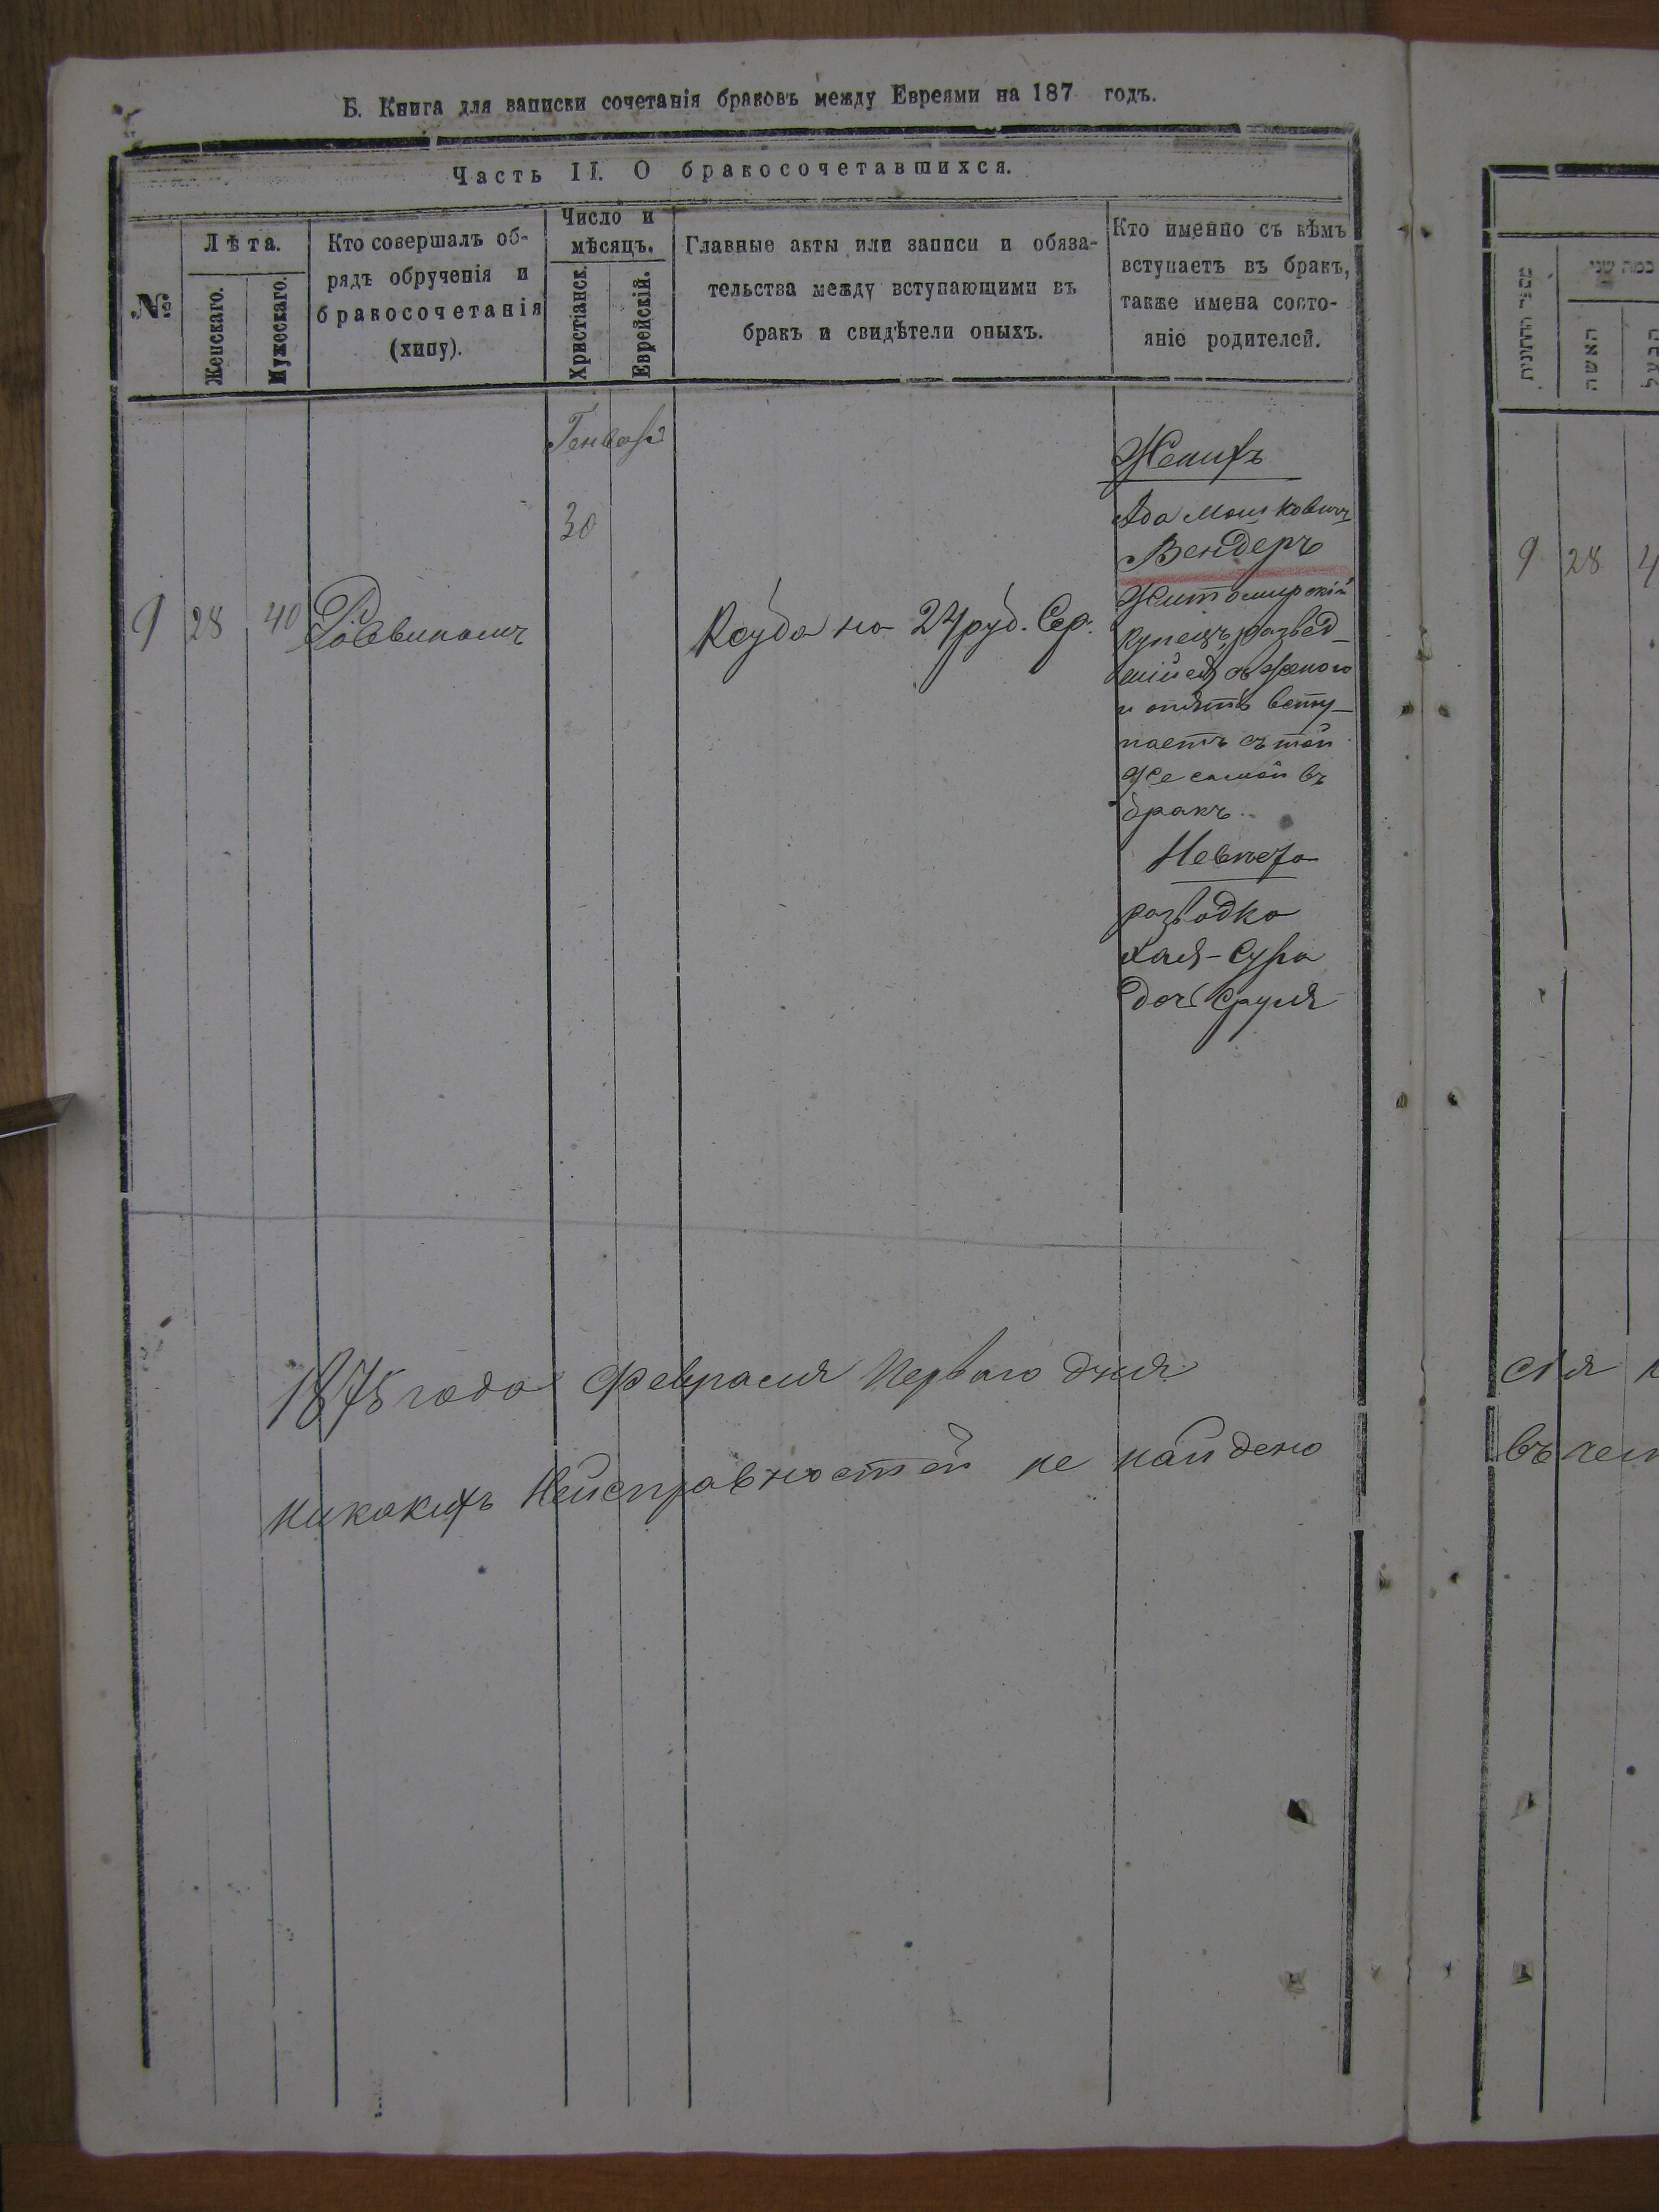 Б. Книга для записки сочетанія браковъ между Евреями на 187 годъ.
Часть II. О бракосочетавшихся.
№
Лѣта.
Женскаго.
Мужескаго.
Кто совершалъ об-
рядъ обрученія и
бракосочетанія
(хипу).
Число и
мѣсяцъ.
Христіанск.
Еврейскій.
Главные акты или записи и обяза-
тельства между вступающими въ
бракъ и свидѣтели оныхъ.
Кто именно съ кѣмъ
вступаетъ въ бракъ,
также имена состо-
яніе родителей.
Генваря
30
9
28
40
Ксуба на 24 руб. Сер.
Женихъ
Мошковичъ
Вендеръ
Житомирскій
купецъ, развед-
шійся съ женою
и опять всту-
паетъ съ той
же самой въ
бракъ.
Невеста
разводка
Хая-Сура
дочь Сруля
1875 года Февраля Перваго дня
никакихъ Неисправностей не найдено
מספר החתונות
כמה שני
האשה
הבעל
9
28
4
сія
въ чем